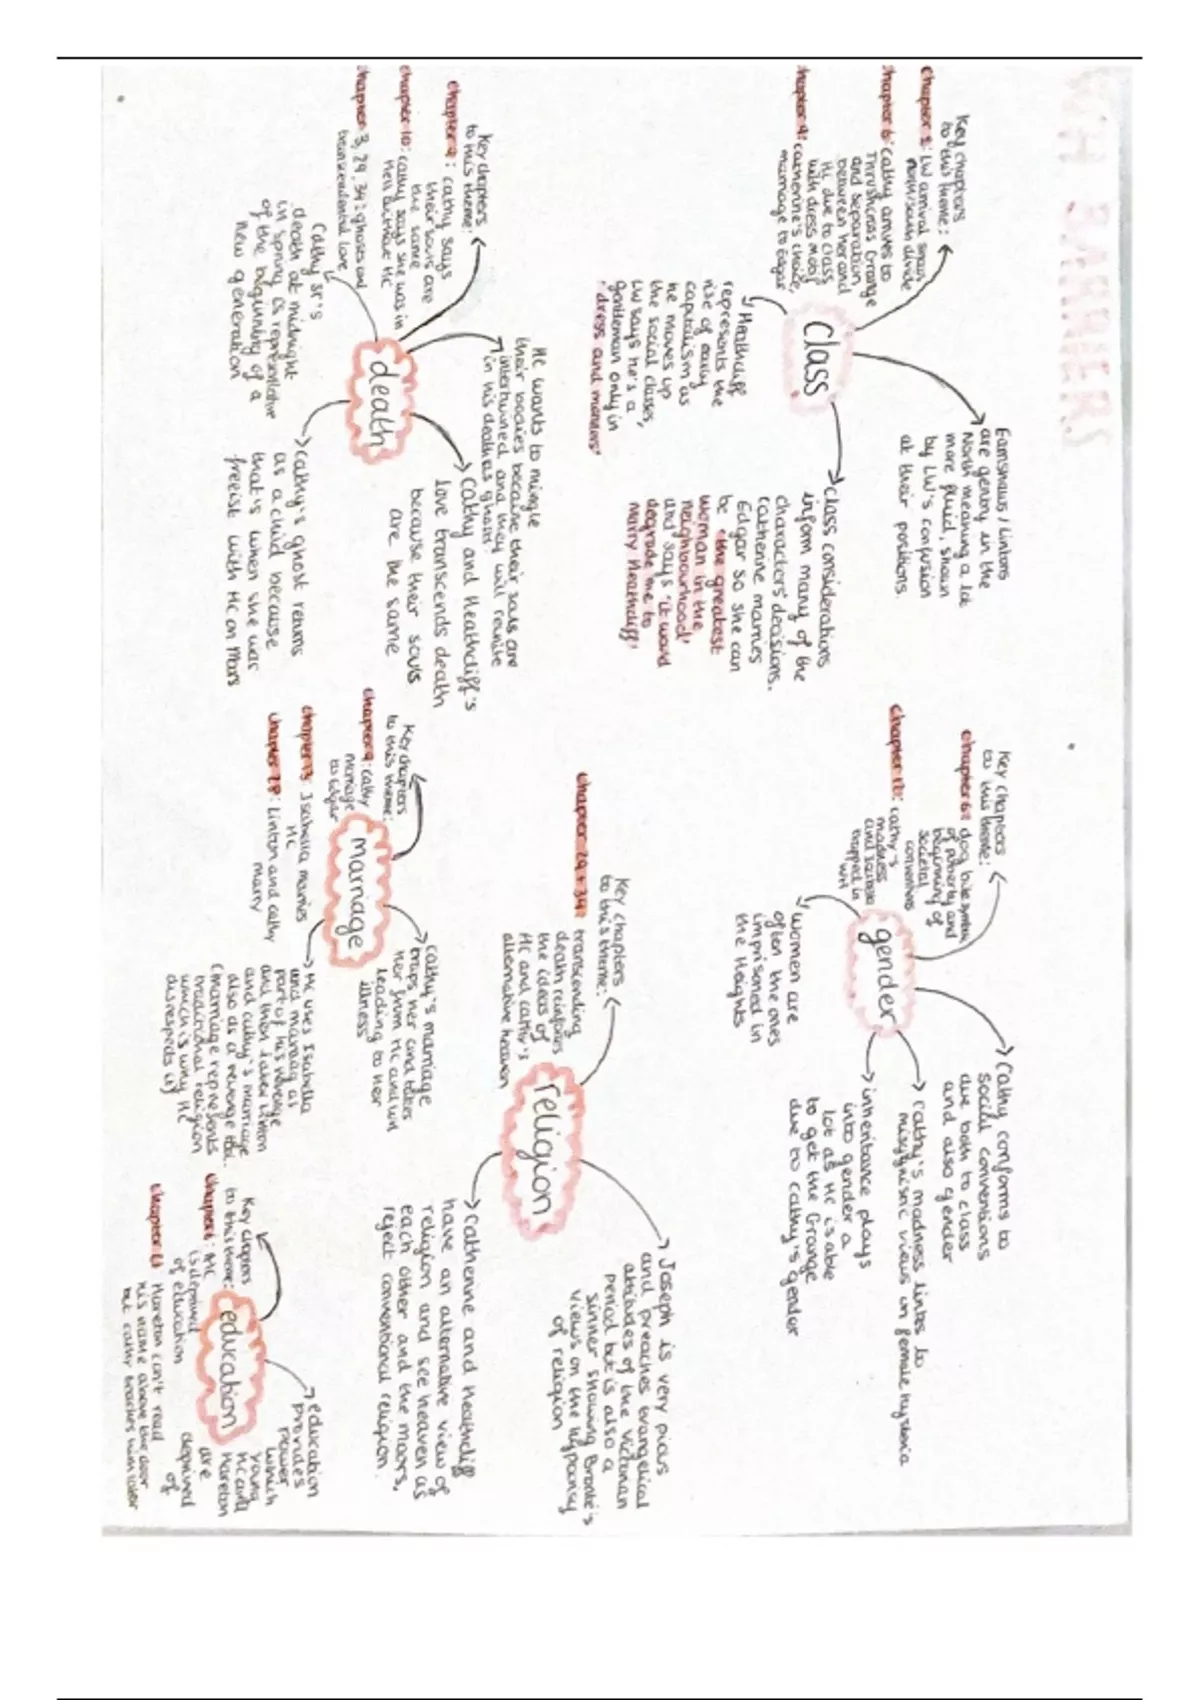 WH BARRIERS
class
Key chapters
to this theme:
chapter 1: LW arrival shows
north/south divide
chapter 6: Cathy arrives to
Thrushcross Grange
and separation
between her and
Hc due to class
with dress motif
chapter 9: catherine's choice,
marriage to Edgar
Earnshaws / Lintons
are gentry in the
North meaning a lot
more fluid, shown
by LW's confusion
at their positions.
class considerations
inform many of the
characters' decisions.
catherine marries
Edgar so she can
be 'the greatest
woman in the
neighbourhood'
and says 'it would
degrade me to
marry Heathcliff'
Heathcliff
represents the
rise of early
capitalism as
he moves up
the social classes,
LW says he's a
gentleman only in
'dress and manners'
gender
Key chapters
to this theme:
chapter 6: dog bite symbol
of puberty and
beginning of
societal
conventions
chapter 12: cathy's
madness
and
trapped in
WH
Cathy conforms to
social conventions
due both to class
and also gender
cathy's madness links to
misogynistic views on female hysteria
inheritance plays
into gender a
lot as Hc is able
to get the Grange
due to cathy's gender
women are
often the ones
imprisoned in
the Heights
death
Key chapters
to this theme:
chapter 9: cathy says
their souls are
the same
chapter 10: cathy says she was in
Hell without Hc
chapter 3, 29, 34: ghosts and
transcendental love
Hc wants to mingle
their bodies because their souls are
intertwined and they will reunite
in his death as ghosts.
Cathy and Heathcliff's
love transcends death
because their souls
are the same
cathy's ghost returns
as a child because
that's when she was
freeist with Hc on Mors
Cathy sr's
death at midnight
in spring is representative
of the beginning of a
new generation
religion
Key chapters
to this theme:
chapter 29 + 34: transcending
death reinforces
the ideas of
Hc and cathy's
alternative heaven
Joseph is very pious
and preaches evangelical
attitudes of the Victorian
period but is also a
sinner showing Bronte's
views on the hypocrisy
of religion
Catherine and Heathcliff
have an alternative view of
religion and see heaven as
each other and the moors,
reject conventional religion.
marriage
Key chapters
to this theme:
chapter 9: cathy
marriage
to Edgar
chapter 13: Isabella marries
Hc
chapter 27: Linton and cathy
marry
cathy's marriage
traps her and takes
her from Hc and
leading to her
illness
Hc uses Isabella
and marriage as
part of his revenge
and then later Linton
and cathy's marriage
also as a revenge
(marriage represents
traditional religion
which is why Hc
disrespects it)
education
Key chapters
to this theme:
chapter 6: Hc
is deprived
of education
Hareton can't read
his name above the door
but cathy teaches him later
education
provides
power
which
young
Hc and
Hareton
are
deprived
of